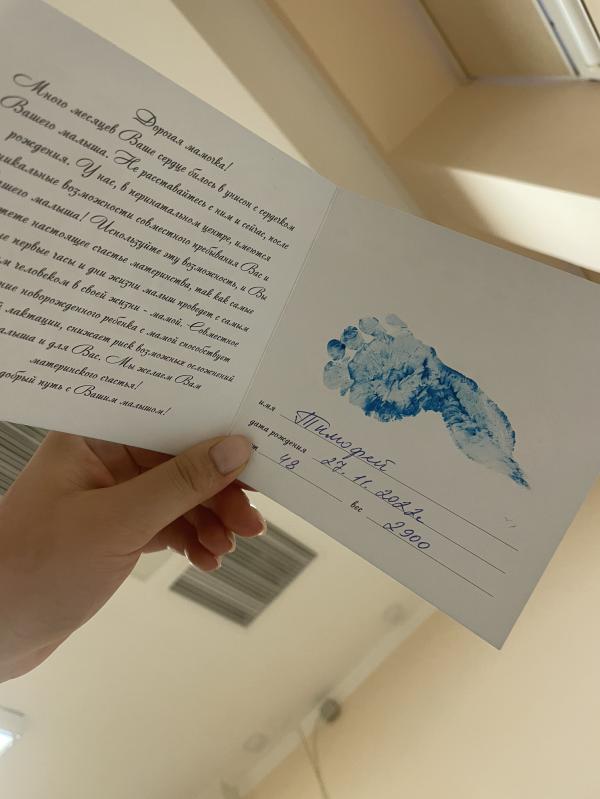 Дорогая мамочка!
Много месяцев Ваше сердце билось в унисон с сердечком
Вашего малыша. Не расставайтесь с ним и сейчас, после
рождения. У нас, в перинатальном центре, имеются
возможности совместного пребывания Вас и
малыша! Используйте эту возможность, и Вы
настоящее счастье материнства, так как самые
первые часы и дни жизни малыш проведет с самым
человеком в своей жизни - мамой. Совместное
новорожденного ребенка с мамой способствует
лактации, снижает риск возможных осложнений
и для Вас. Мы желаем Вам
материнского счастья!
добрый путь с Вашим малышом!
имя Тимофей
дата рождения 27.11.2022г
48 вес 2900